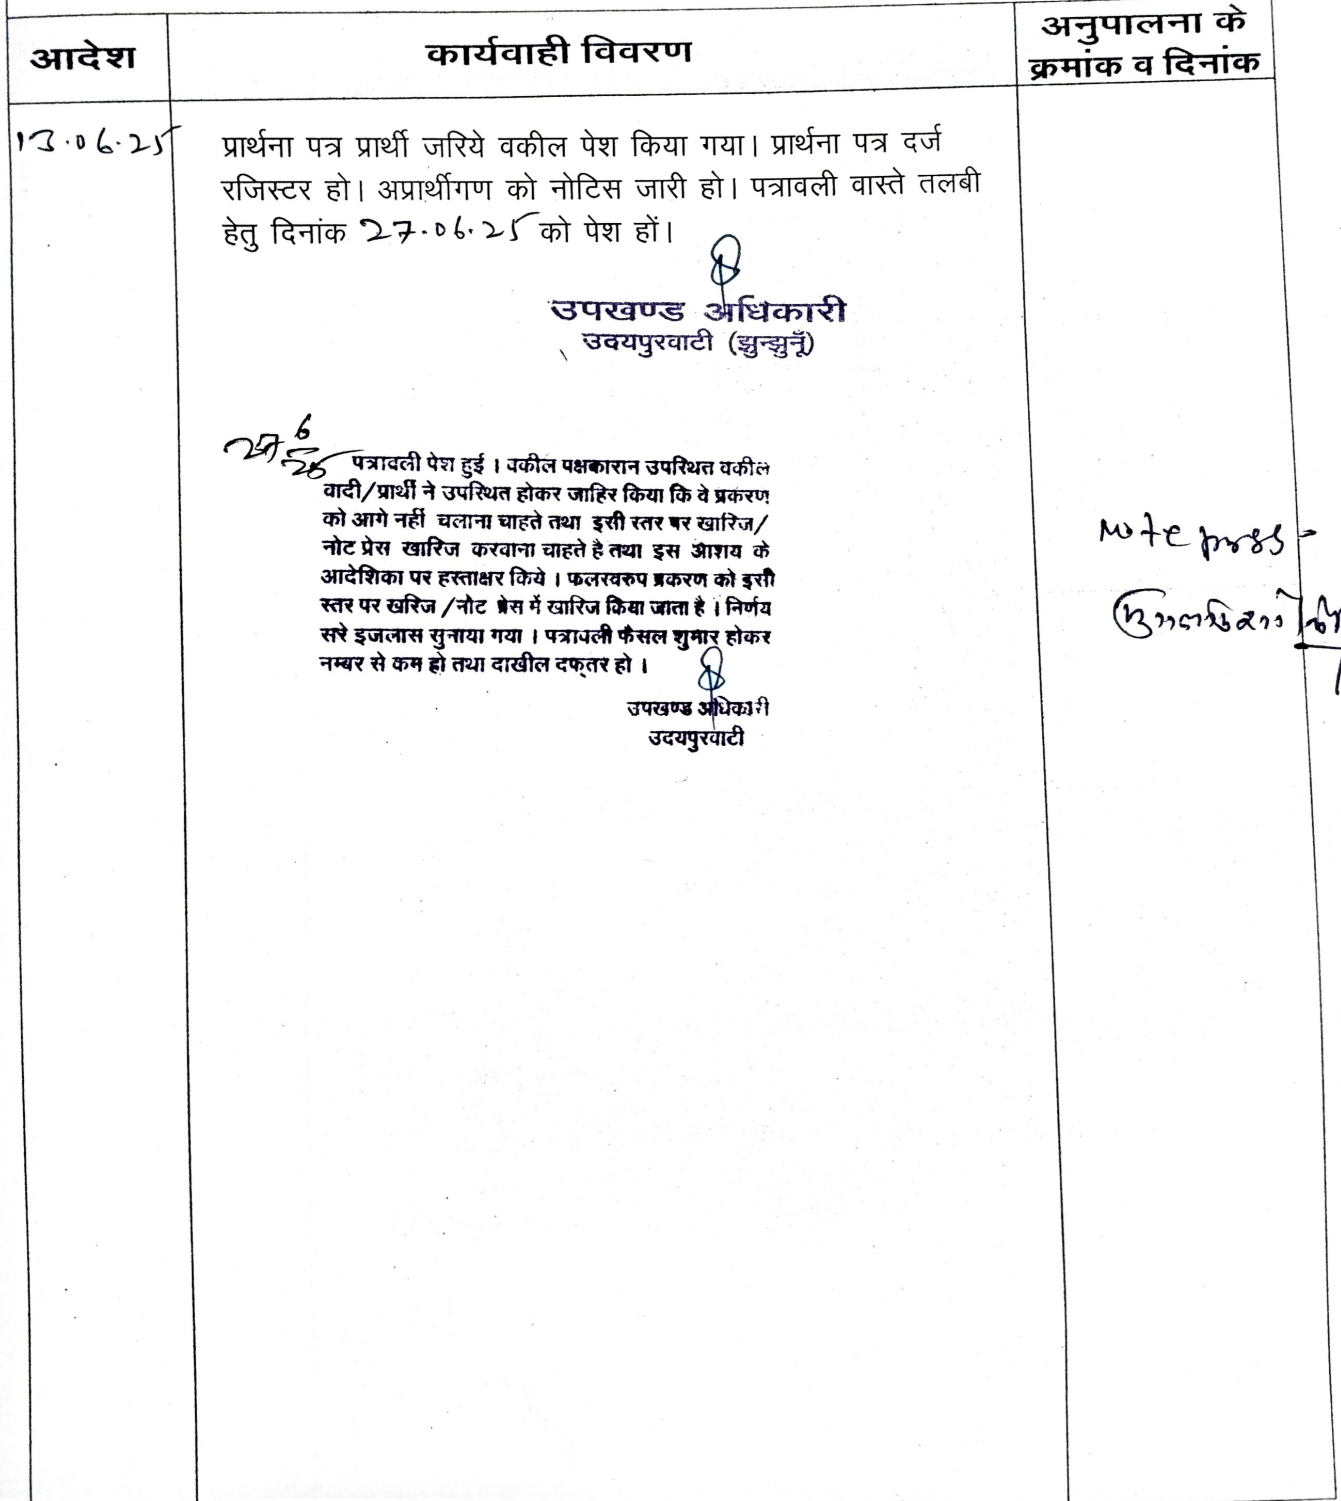 आदेश
कार्यवाही विवरण
अनुपालना के
क्रमांक व दिनांक
13.06.25
प्रार्थना पत्र प्रार्थी जरिये वकील पेश किया गया। प्रार्थना पत्र दर्ज
रजिस्टर हो। अप्रार्थीगण को नोटिस जारी हो। पत्रावली वास्ते तलबी
हेतु दिनांक 27.06.25 को पेश हों।
उपखण्ड अधिकारी
उदयपुरवाटी (झुन्झुनूँ)
27 6
25 पत्रावली पेश हुई । वकील पक्षकारान उपस्थित वकील
वादी/प्रार्थी ने उपस्थित होकर जाहिर किया कि वे प्रकरण
को आगे नहीं चलाना चाहते तथा इसी स्तर पर खारिज/
नोट प्रेस खारिज करवाना चाहते है तथा इस आशय के
आदेशिका पर हस्ताक्षर किये । फलस्वरुप प्रकरण को इसी
स्तर पर खरिज /नौट प्रेस में खारिज किया जाता है । निर्णय
सरे इजलास सुनाया गया । पत्रावली फैसल शुमार होकर
नम्बर से कम हो तथा दाखील दफ्तर हो ।
उपखण्ड अधिकारी
उदयपुरवाटी
Note press